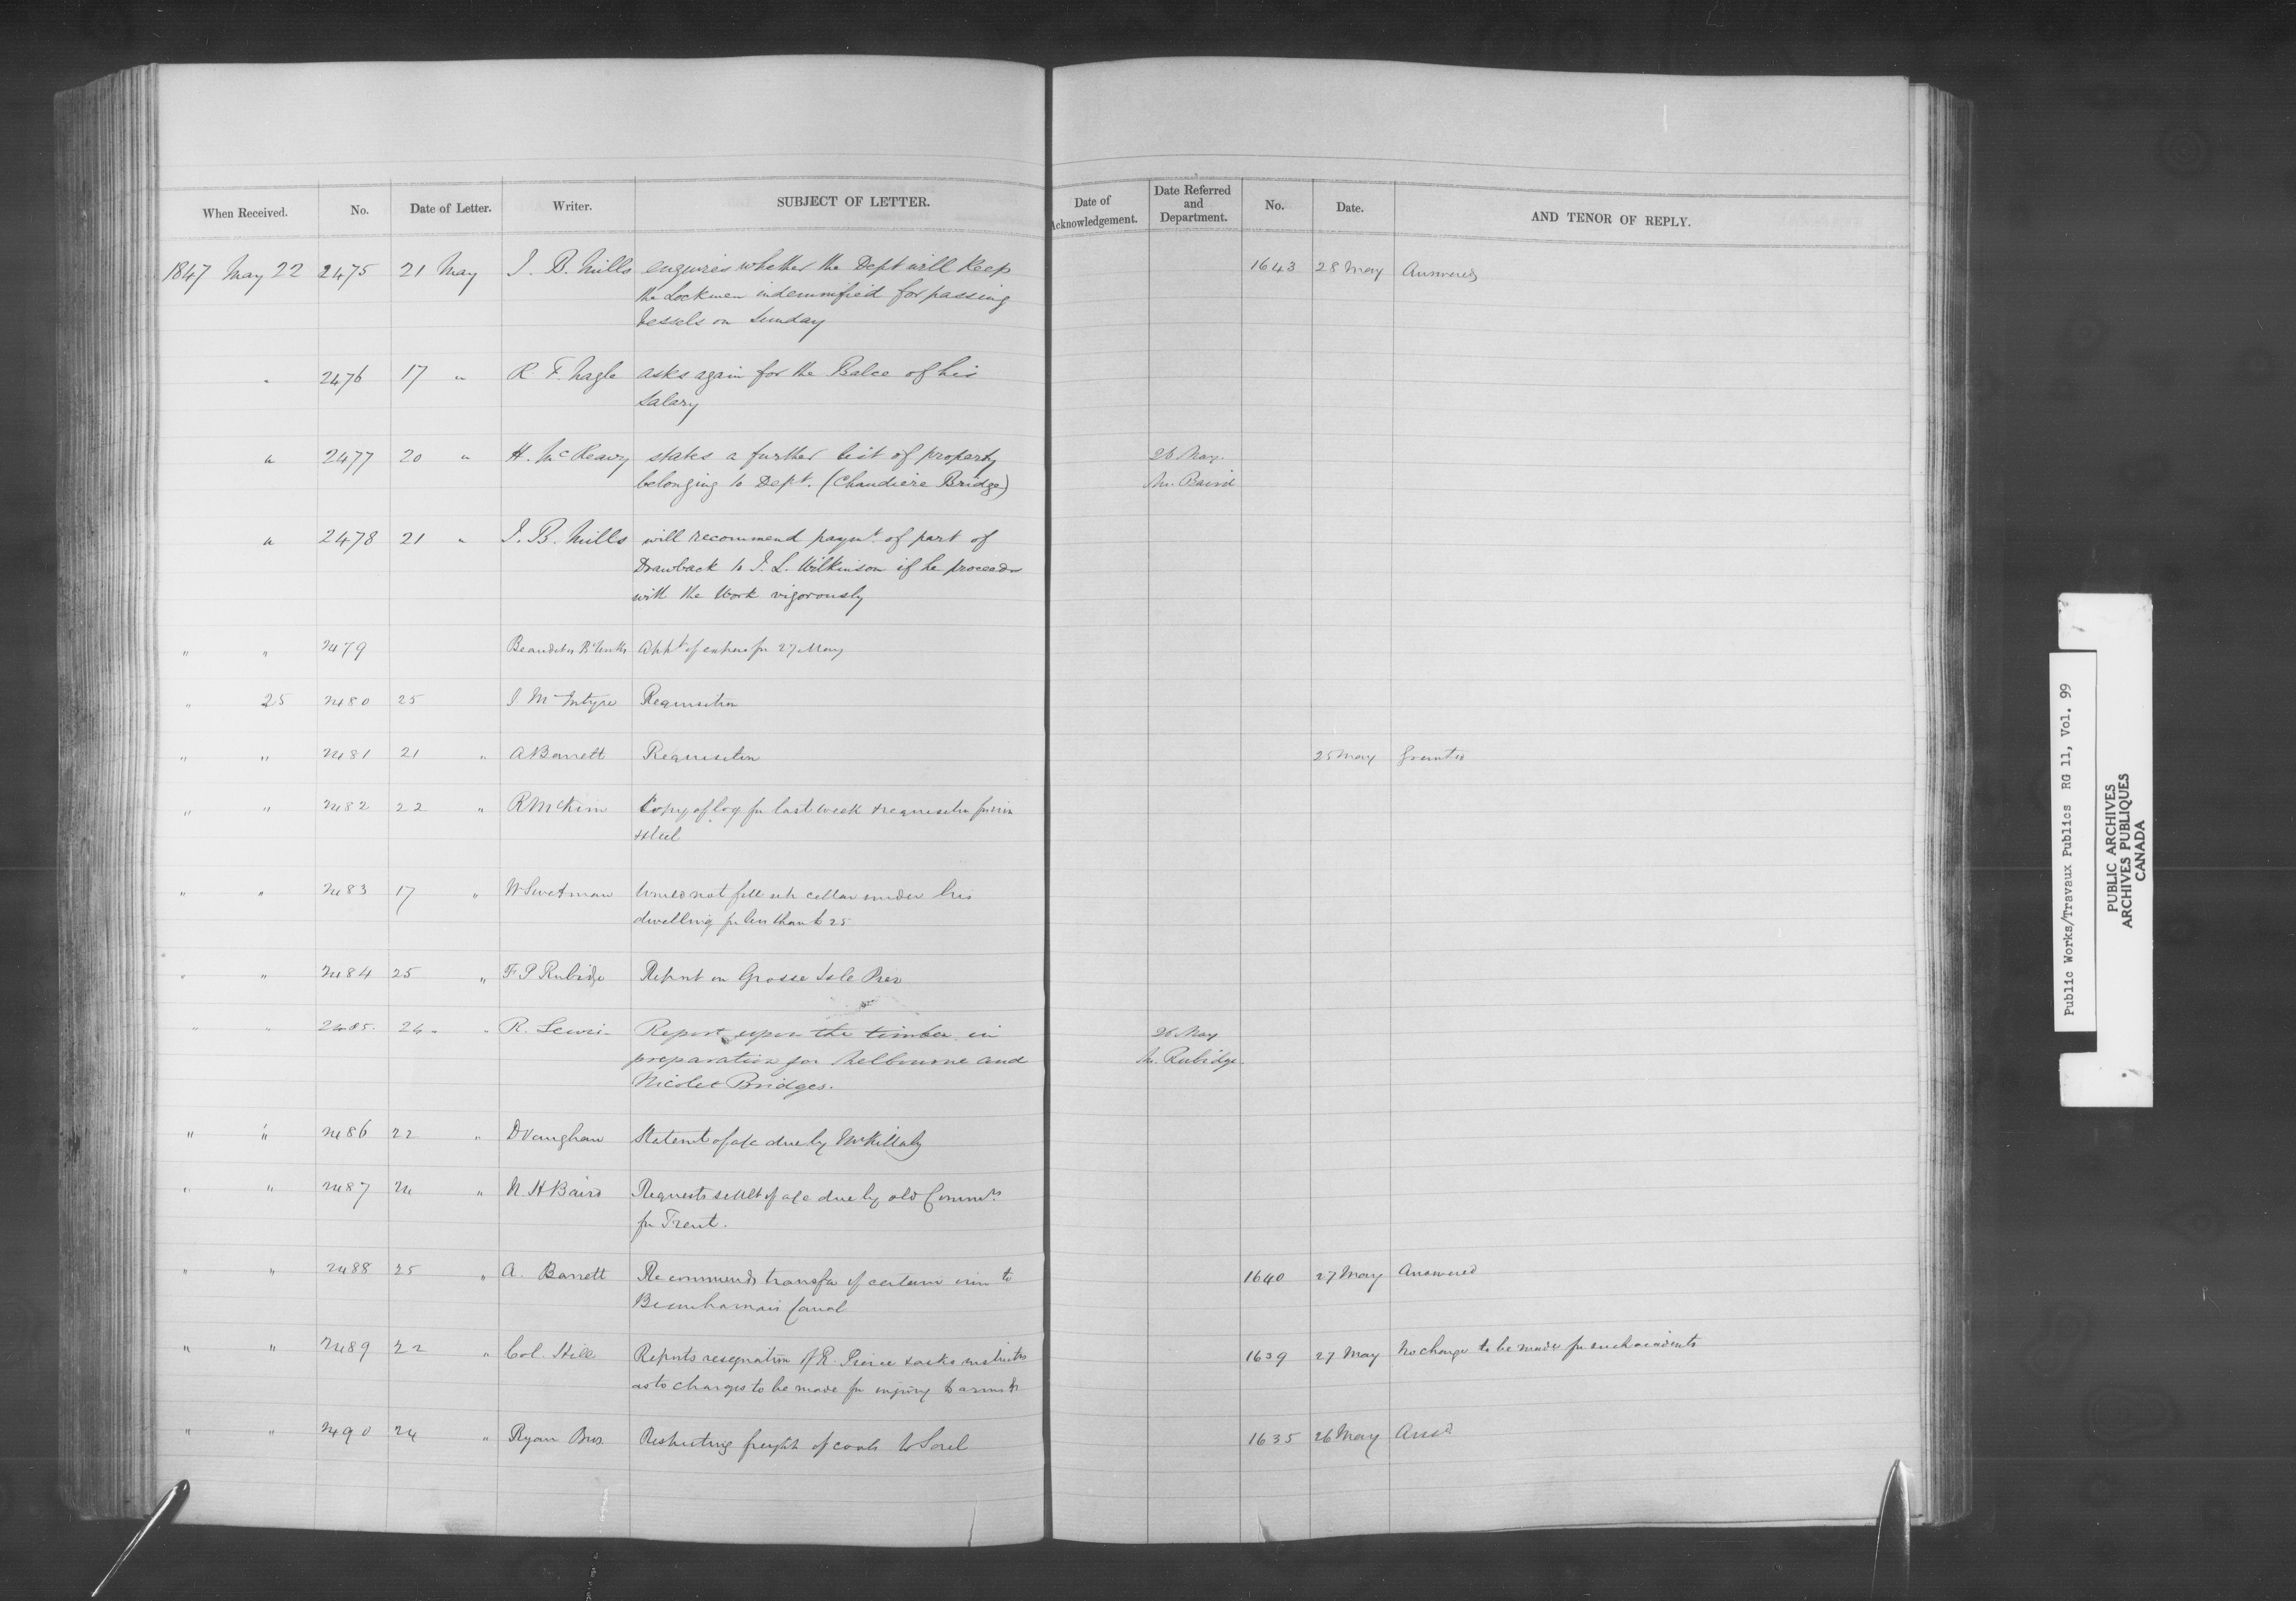 When Received. No. Date of Letter. Writer. SUBJECT OF LETTER. Date of Acknowledgement. Date Referred and Department. No. Date. AND TENOR OF REPLY.
1847 May 22 2475 21 May J. B. Mills enquires whether the Dept will keep 1643 28 May Answered
the Lockmen indemnified for passing
Vessels on Sunday
" 2476 17 " R. F. Nagle asks again for the Balce of his
Salary
" 2477 20 " H. McReavy states a further list of property 26 May.
belonging to Dept. (Chaudiere Bridge) Mr. Baird
" 2478 21 " J. B. Mills will recommend paymt. of part of
Drawback to J. L. Wilkinson if he proceeds
with the Work vigorously
" " 2479 27 May
" 25 2480 25 J McIntyre Requisition
" " 2481 21 " A Barrett Requisition 25 May Granted
" " 2482 22 " R McKim Copy of log for last week & requisition for iron
& steel
" " 2483 17 " W Swetman Would not fill up cellar under his
dwelling for less than £25
" " 2484 25 " F P Rubidge Report on Grosse Isle Pier
" " 2485. 24 " " R. Report upon the timber in 26 May
preparation for Melbourne and Mr. Rubidge.
Nicolet Bridges.
" " 2486 22 " D Vaughan Statemt of a/c due by Mr Killaly
" " 2487 24 " N H Baird Requests settlt of a/c due by old Commrs
for Trent.
" " 2488 25 " A. Barrett Recommends transfer of certain iron to 1640 27 May Answered
Beauharnais Canal
" " 2489 22 " Col. Hill Reports resignation of R. Pierce & asks 1639 27 May No charge to be made for such accidents
as to charges to be made for injury to arms &c
" " 2490 24 " Ryan Bros. Respecting freight of coals to Sorel 1635 26 May Ansd
Public Works/Travaux Publics RG 11, Vol. 99
PUBLIC ARCHIVES
ARCHIVES PUBLIQUES
CANADA